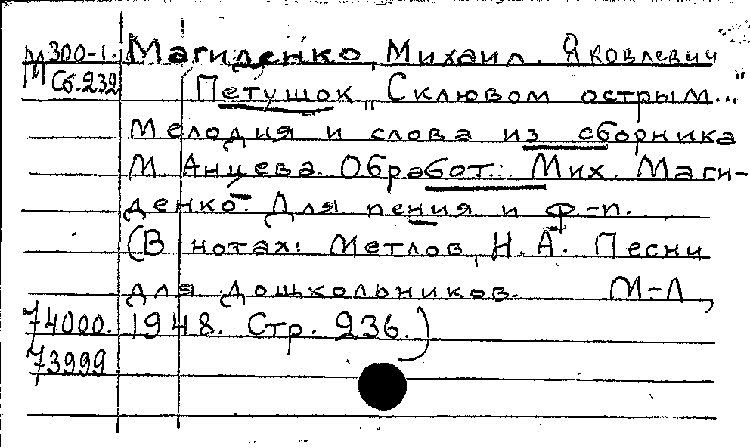 М 300-1. Магиденко, Михаил Яковлевич
М Сб.232 Петушок „С клювом острым..."
Мелодия и слова из сборника
М. Анцева. Обработ.: Мих. Маги-
денко. Для пения и ф-п.
(В нотах: Метлов, Н. А. Песни
для дошкольников. М-Л,
74000. 1948. Стр. 236.)
73999